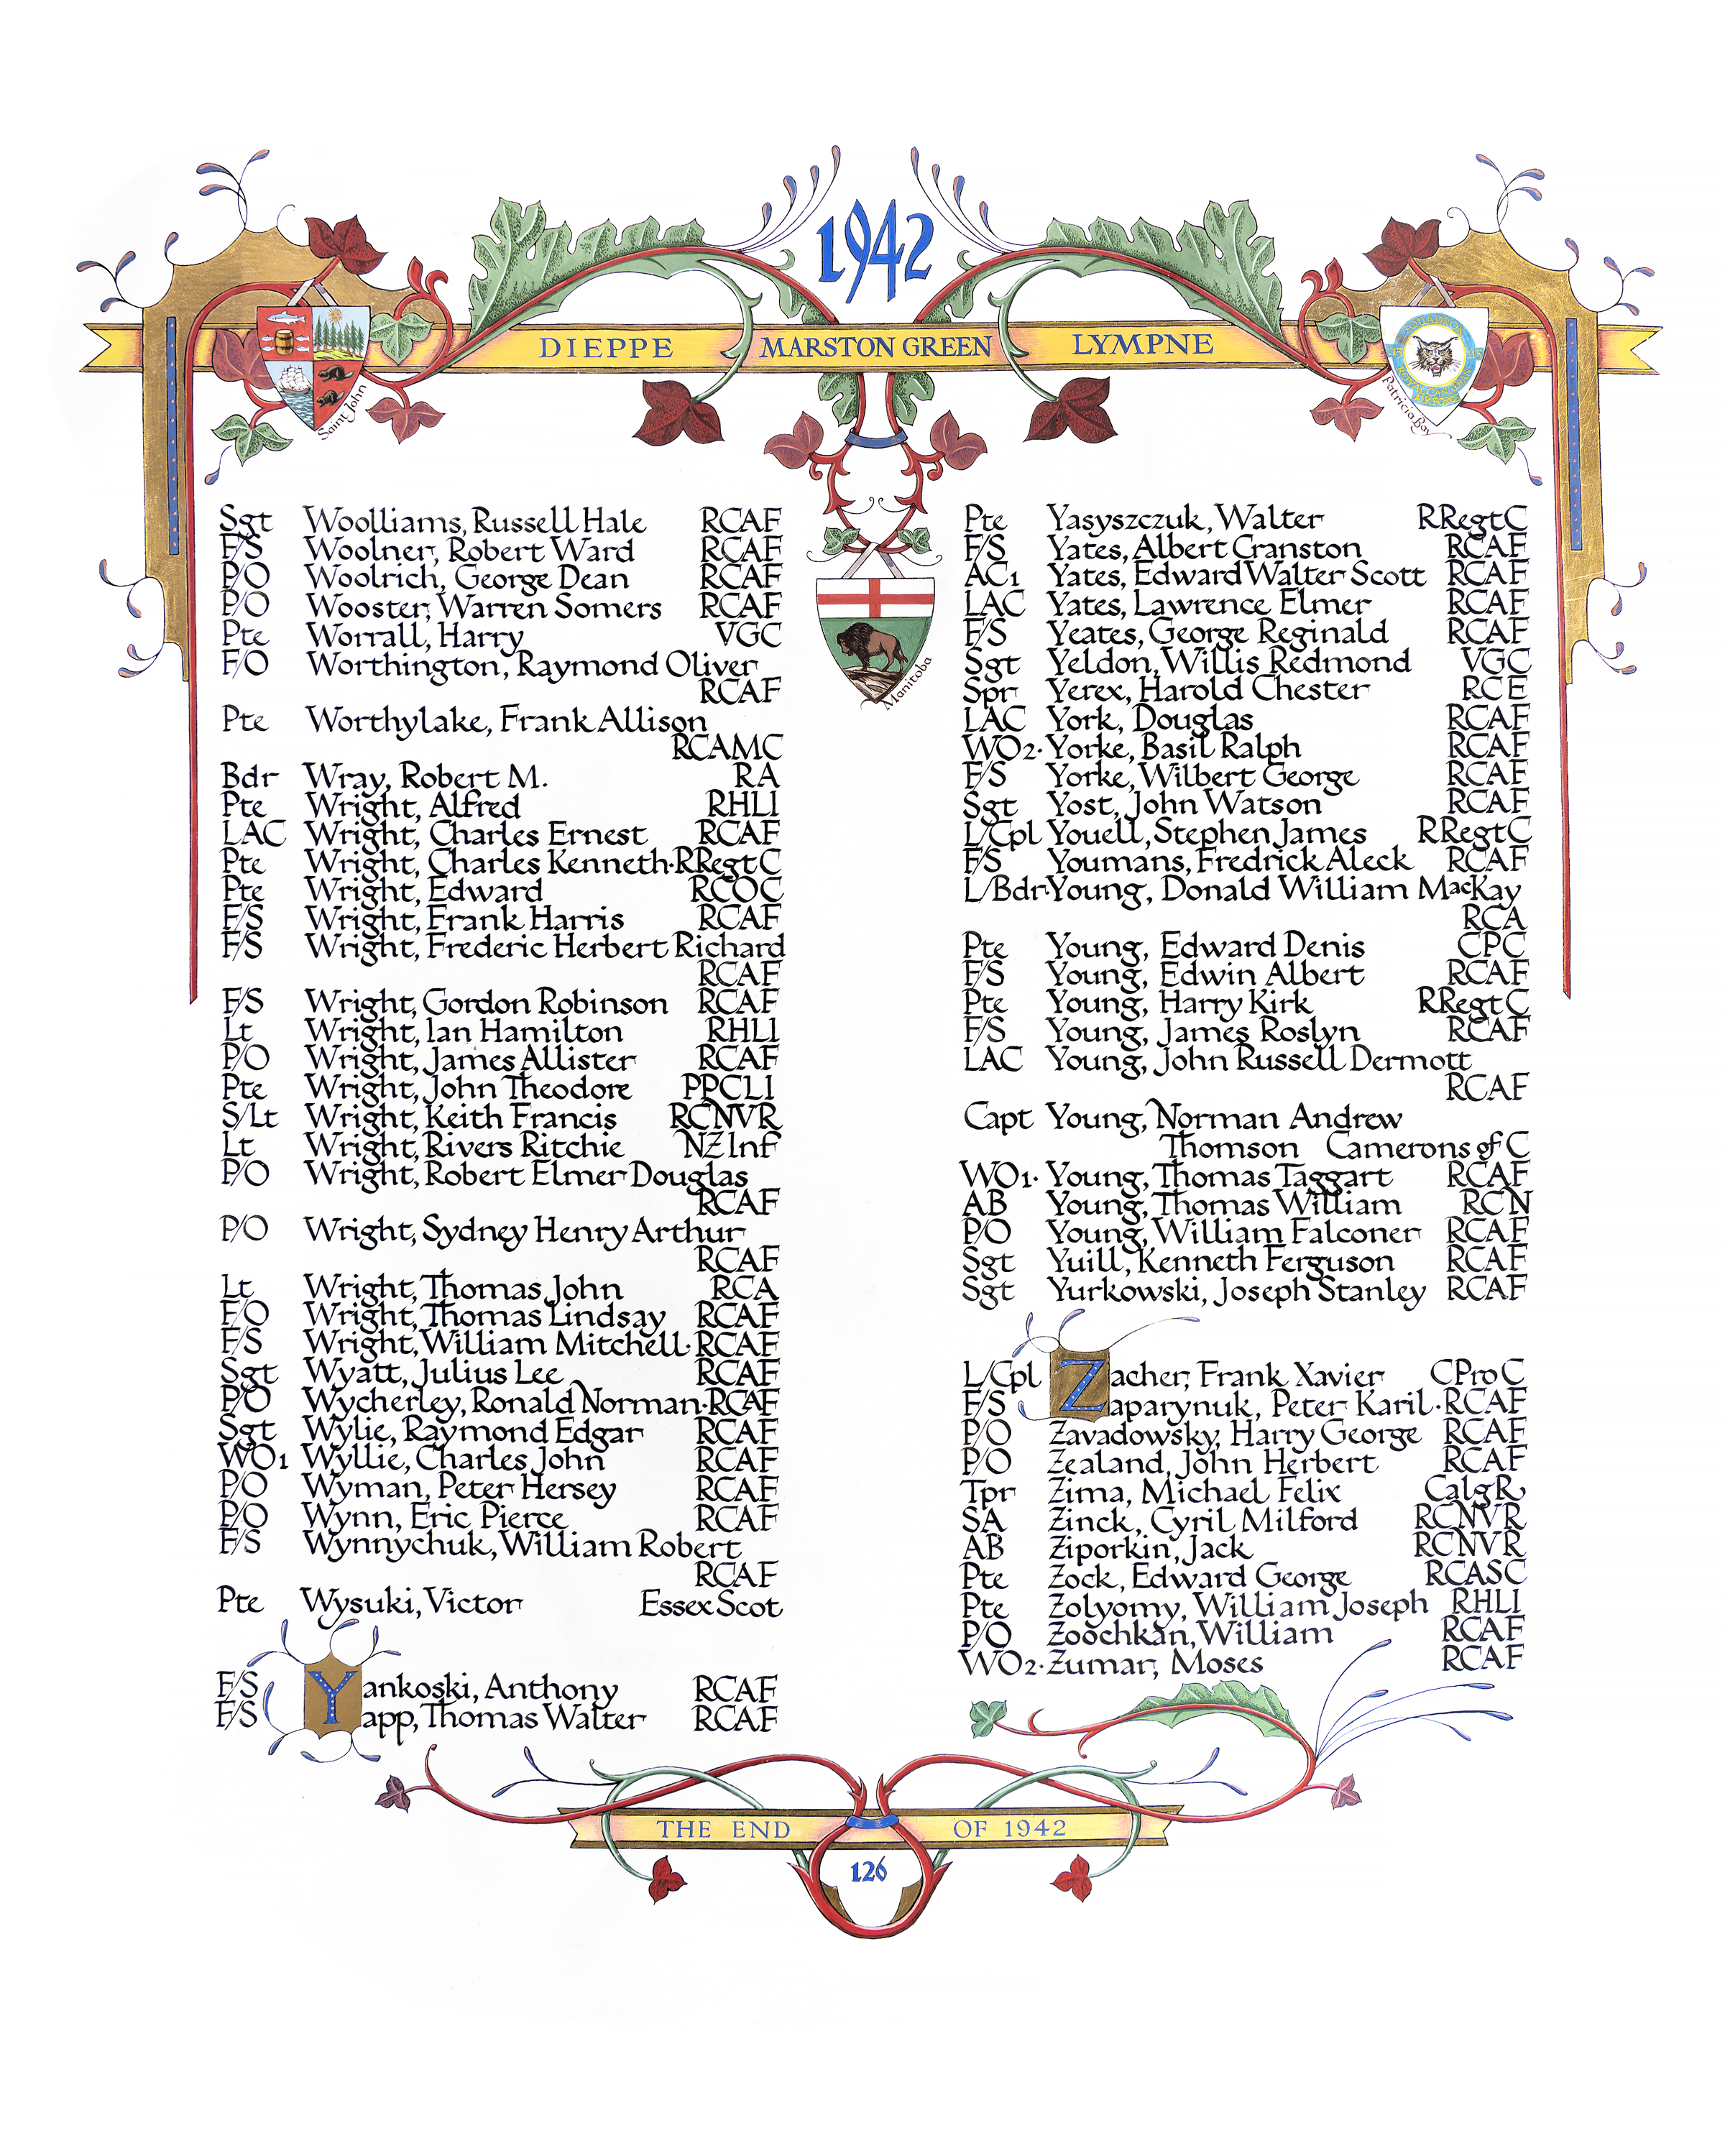 1942
DIEPPE MARSTON GREEN LYMPNE
Saint John
SQUADRON
ROYAL CANADIAN
AIR FORCE
Patricia Bay
Manitoba
Sgt Woolliams, Russell Hale RCAF
F/S Woolner, Robert Ward RCAF
P/O Woolrich, George Dean RCAF
P/O Wooster, Warren Somers RCAF
Pte Worrall, Harry VGC
F/O Worthington, Raymond Oliver
RCAF
Pte Worthylake, Frank Allison
RCAMC
Bdr Wray, Robert M. RA
Pte Wright, Alfred RHLI
LAC Wright, Charles Ernest RCAF
Pte Wright, Charles Kenneth·RRegtC
Pte Wright, Edward RCOC
F/S Wright, Frank Harris RCAF
F/S Wright, Frederic Herbert Richard
RCAF
F/S Wright, Gordon Robinson RCAF
Lt Wright, Ian Hamilton RHLI
P/O Wright, James Allister RCAF
Pte Wright, John Theodore PPCLI
S/Lt Wright, Keith Francis RCNVR
Lt Wright, Rivers Ritchie NZ Inf
P/O Wright, Robert Elmer Douglas
RCAF
P/O Wright, Sydney Henry Arthur
RCAF
Lt Wright, Thomas John RCA
F/O Wright, Thomas Lindsay RCAF
F/S Wright, William Mitchell·RCAF
Sgt Wyatt, Julius Lee RCAF
P/O Wycherley, Ronald Norman·RCAF
Sgt Wylie, Raymond Edgar RCAF
WO1 Wyllie, Charles John RCAF
P/O Wyman, Peter Hersey RCAF
P/O Wynn, Eric Pierce RCAF
F/S Wynnychuk, William Robert
RCAF
Pte Wysuki, Victor Essex Scot
F/S Yankoski, Anthony RCAF
F/S Yapp, Thomas Walter RCAF
Pte Yasyszczuk, Walter RRegtC
F/S Yates, Albert Cranston RCAF
AC1 Yates, Edward Walter Scott RCAF
LAC Yates, Lawrence Elmer RCAF
F/S Yeates, George Reginald RCAF
Sgt Yeldon, Willis Redmond VGC
Spr Yerex, Harold Chester RCE
LAC York, Douglas RCAF
WO2·Yorke, Basil Ralph RCAF
F/S Yorke, Wilbert George RCAF
Sgt Yost, John Watson RCAF
L/Cpl Youell, Stephen James RRegtC
F/S Youmans, Fredrick Aleck RCAF
L/Bdr·Young, Donald William MacKay
RCA
Pte Young, Edward Denis CPC
F/S Young, Edwin Albert RCAF
Pte Young, Harry Kirk RRegtC
F/S Young, James Roslyn RCAF
LAC Young, John Russell Dermott
RCAF
Capt Young, Norman Andrew
Thomson Camerons of C
WO1· Young, Thomas Taggart RCAF
AB Young, Thomas William RCN
P/O Young, William Falconer RCAF
Sgt Yuill, Kenneth Ferguson RCAF
Sgt Yurkowski, Joseph Stanley RCAF
L/Cpl Zacher, Frank Xavier CProC
F/S Zaparynuk, Peter Karil·RCAF
P/O Zavadowsky, Harry George RCAF
P/O Zealand, John Herbert RCAF
Tpr Zima, Michael Felix CalgR
SA Zinck, Cyril Milford RCNVR
AB Ziporkin, Jack RCNVR
Pte Zock, Edward George RCASC
Pte Zolyomy, William Joseph RHLI
P/O Zoochkan, William RCAF
WO2·Zumar, Moses RCAF
THE END OF 1942
126